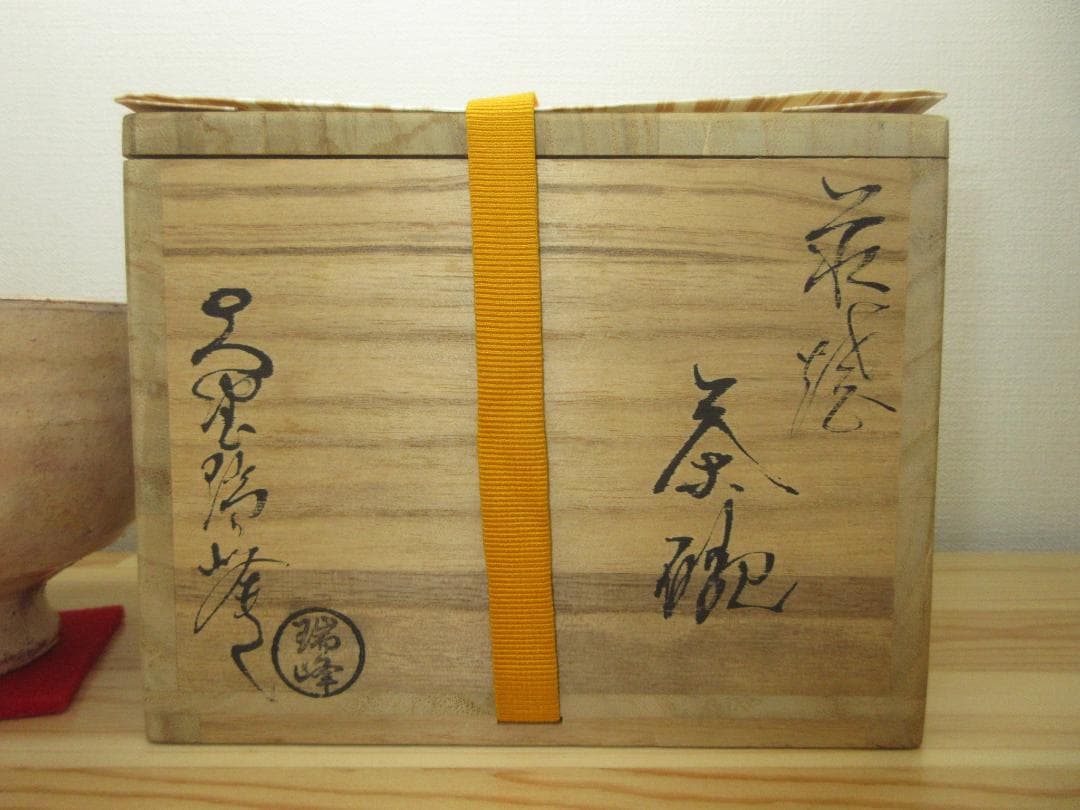 萩焼
茶碗
天里瑞峰
瑞峰